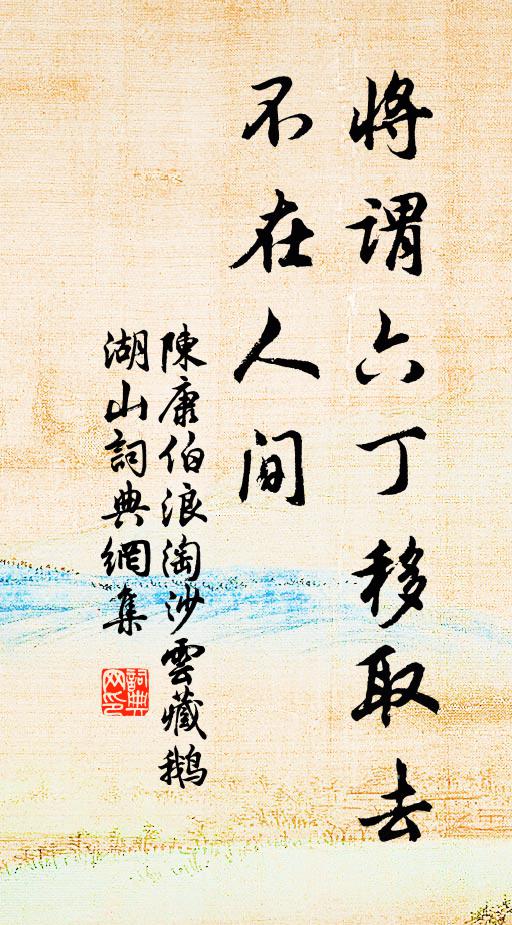 將謂六丁移取去
不在人間
陳康伯浪淘沙雲藏鵝
湖山詞典網集
詞典
网印